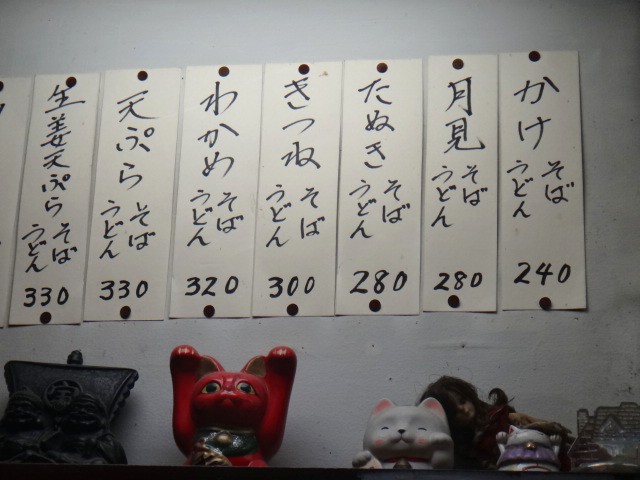 かけ
そば
うどん
240
月見
そば
うどん
280
たぬき
そば
うどん
280
きつね
そば
うどん
300
わかめ
そば
うどん
320
天ぷら
そば
うどん
330
生姜天ぷら
そば
うどん
330